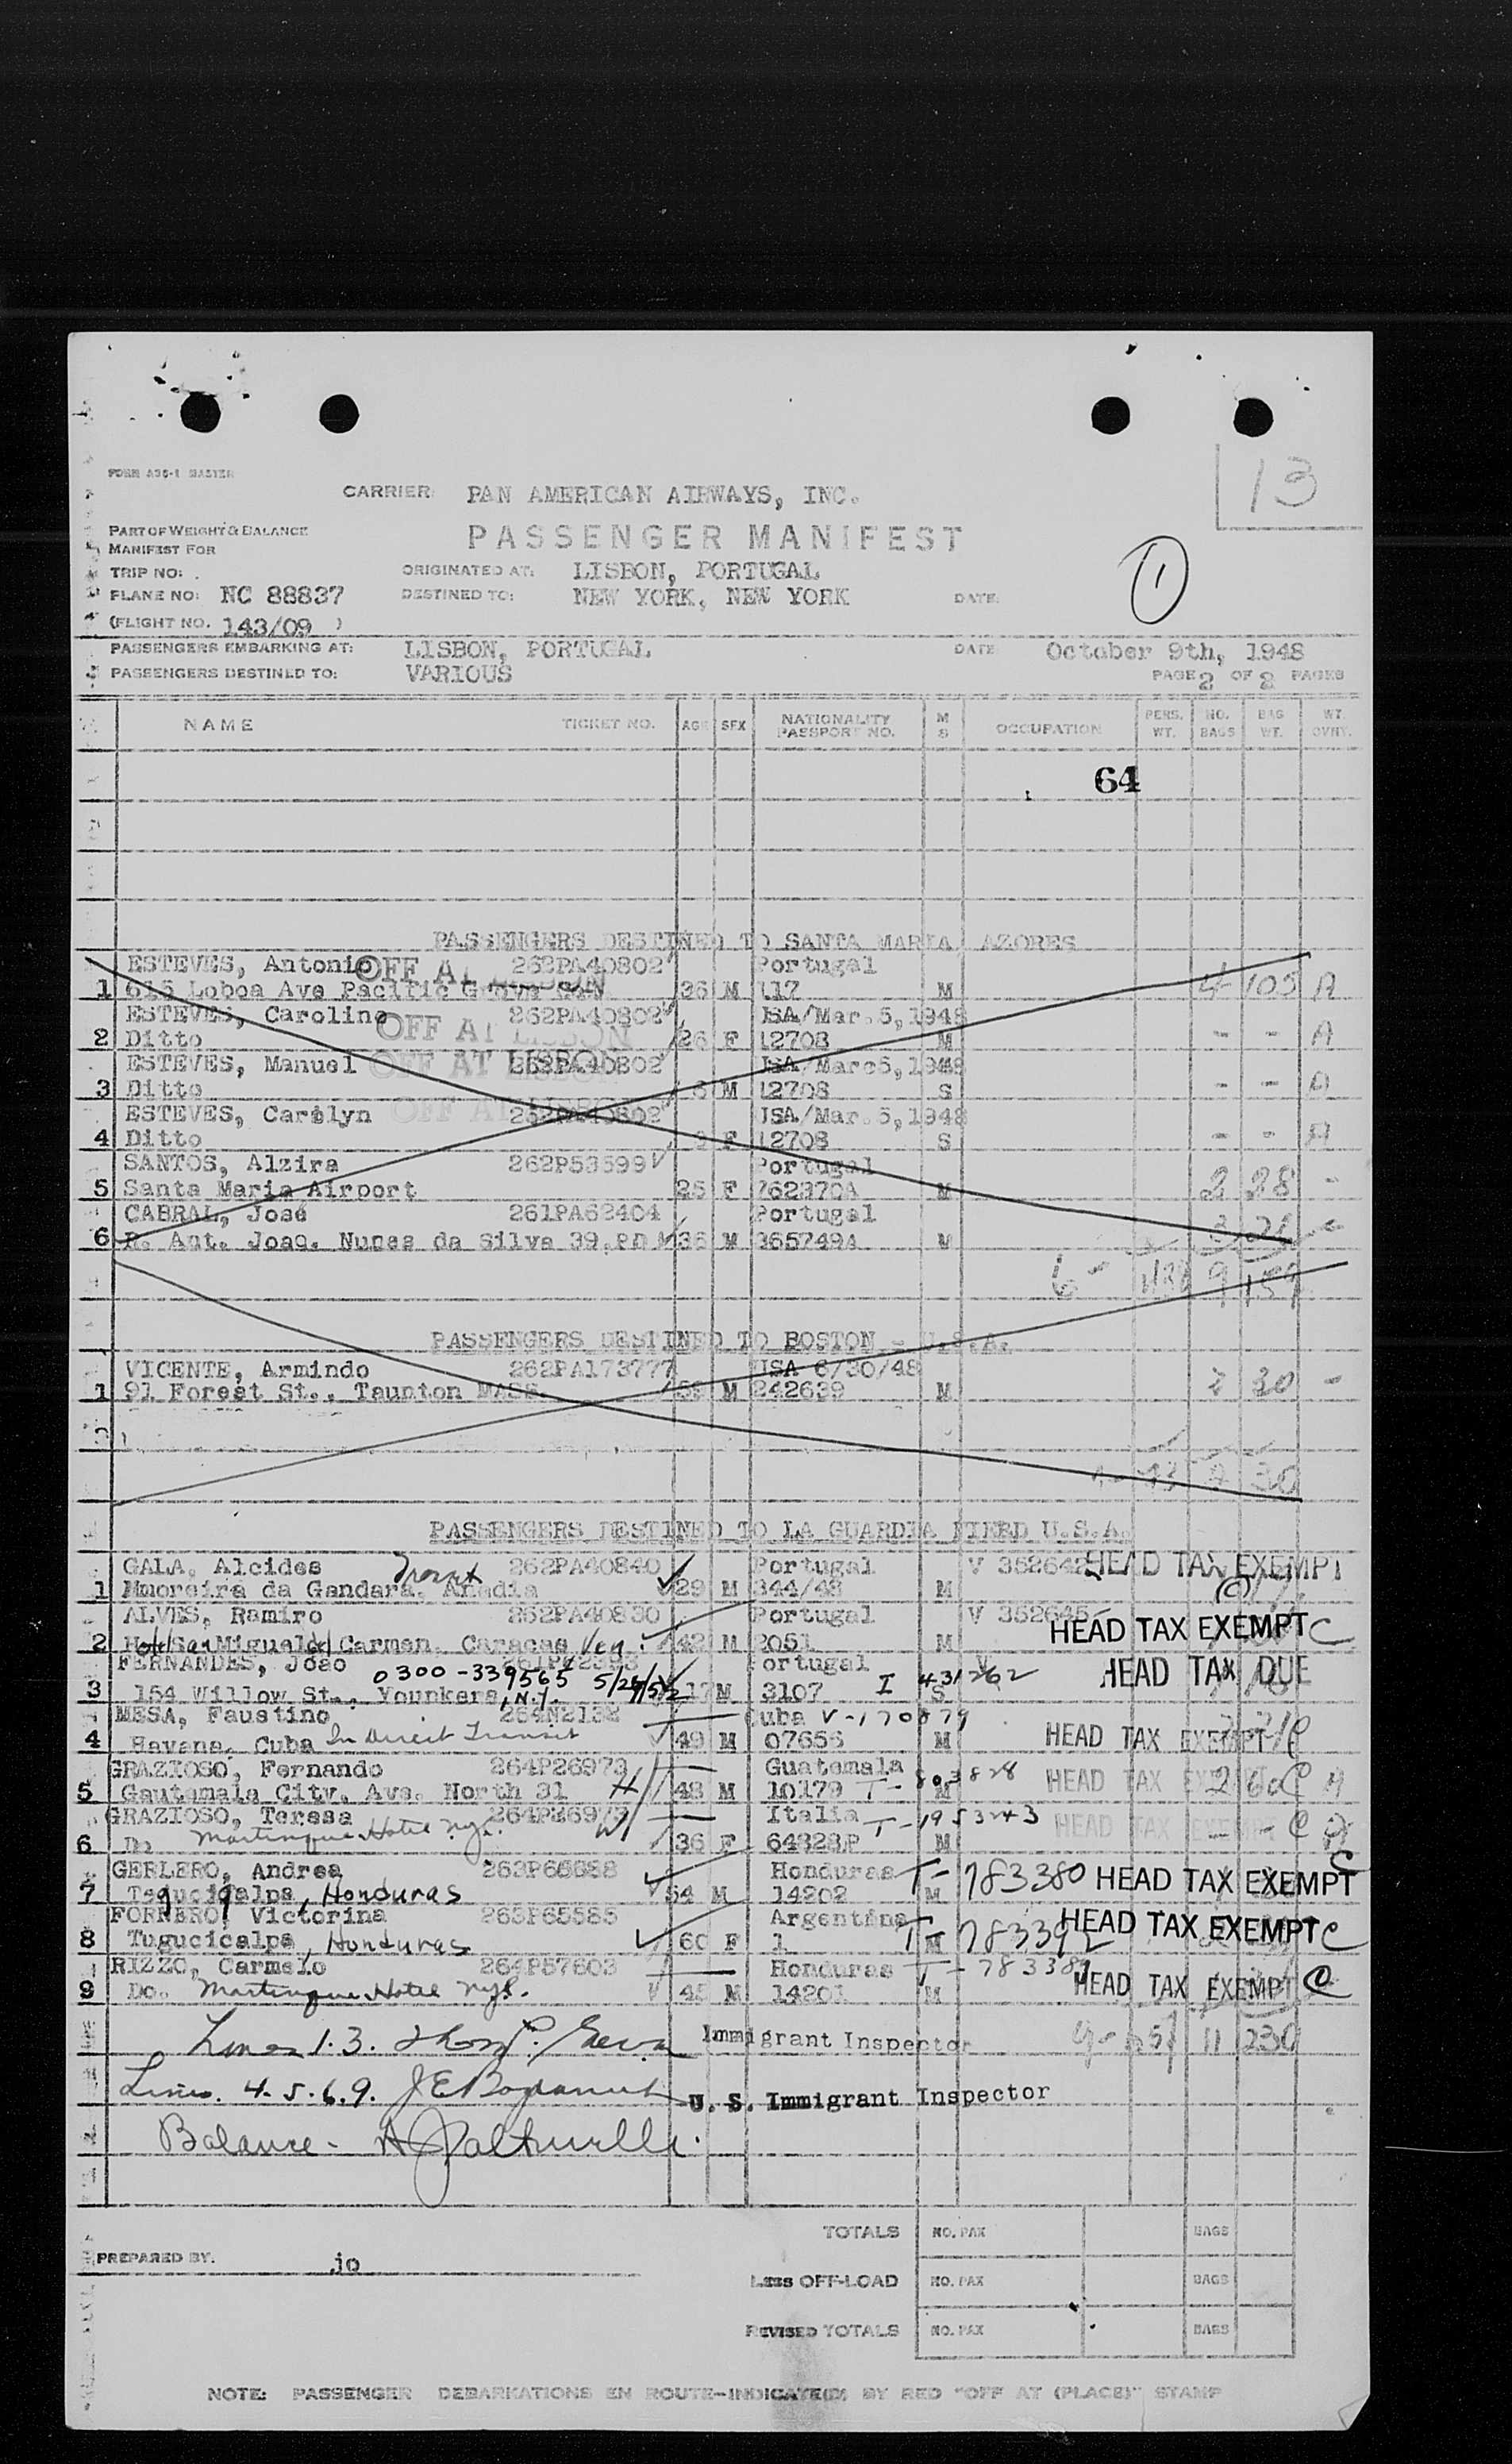 13
FORM A36-1 MASTER
CARRIER: PAN AMERICAN AIRWAYS, INC.
PART OF WEIGHT & BALANCE
MANIFEST FOR
PASSENGER MANIFEST
1
TRIP NO: ORIGINATED AT: LISBON, PORTUGAL
PLANE NO: NC 88837 DESTINED TO: NEW YORK, NEW YORK DATE:
(FLIGHT NO. 143/09 )
PASSENGERS EMBARKING AT: LISBON, PORTUGAL DATE October 9th, 1948
PASSENGERS DESTINED TO: VARIOUS PAGE 2 OF 2 PAGES
NAME TICKET NO. AGE SEX NATIONALITY PASSPORT NO. M S OCCUPATION PERS. WT. NO. BAGS BAG WT. WT. OVNY.
64
PASSENGERS DESTINED TO SANTA MARIA, AZORES
ESTEVES, Antonio OFF AT LISBON 262PA40802 Portugal
1 615 Loboa Ave Pacific Grove 36 M 117 M 4 105 A
ESTEVES, Caroline OFF AT LISBON 262PA40802 USA/Mar.5,1948
2 Ditto 26 F 12708 M - - A
ESTEVES, Manuel OFF AT LISBON 262PA40802 USA/Marc5,1948
3 Ditto M 12708 S - - A
ESTEVES, Carolyn OFF AT LISBON 262PA40802 USA/Mar.5,1948
4 Ditto F 12708 S - - A
SANTOS, Alzira 262P53599 Portugal
5 Santa Maria Airport 25 F 762370A M 2 28 -
CABRAL, José 261PA62404 Portugal
6 R. Ant. Joao. Nunes da Silva 39, 36 M 365749A M
6 - 9 159
PASSENGERS DESTINED TO BOSTON - U.S.A.
VICENTE, Armindo 262PA173777 USA 6/30/48
1 91 Forest St., Taunton MASS. M 242639 M 2 30 -
30
PASSENGERS DESTINED TO LA GUARDIA FIERD U.S.A.
GALA, Alcides 262PA40840 Portugal V 352642 HEAD TAX EXEMPT
1 Mmoreira da Gandara, Anadia 29 M 344/48 M
ALVES, Ramiro 262PA40830 Portugal V 352645
2 Hotel San Miguel del Carmen, Caracas Ven. 42 M 2051 M HEAD TAX EXEMPT C
FERNANDES, João 0300-339565 Portugal V HEAD TAX DUE
3 154 Willow St., Younkers, N.Y. 17 M 3107 I 431262 S
MESA, Faustino 264N2132 Cuba V-170879
4 Havana, Cuba In Direct Transit 49 M 07656 M HEAD TAX EXEMPT C
GRAZIOSO, Fernando 264P26973 Guatemala
5 Gautemala City, Ave. North 31 48 M 10179 T-803828 M HEAD TAX EXEMPT C
GRAZIOSO, Teresa 264P26975 Italia T-1953243 HEAD TAX EXEMPT C
6 Do Martinique Hotel Nyc. 36 F 64828P M
GERLERO, Andrea 263P65588 Honduras T-783380 HEAD TAX EXEMPT C
7 Tegucigalpa, Honduras 54 M 14202 M
FORNERO, Victorina 263P65585 Argentina T-783392 HEAD TAX EXEMPT C
8 Tugucicalpa, Honduras 60 F 1 M
RIZZO, Carmelo 264P57603 Honduras T-783381
9 Do. Martinique Hotel Nyc. 45 M 14201 M HEAD TAX EXEMPT C
Lines 1.3. Immigrant Inspector 11 230
Lines. 4.5.6.9. U. S. Immigrant Inspector
Balance -
TOTALS NO. PAX BAGS
PREPARED BY. jo
LESS OFF-LOAD NO. PAX BAGS
REVISED TOTALS NO. PAX BAGS
NOTE: PASSENGER DEBARKATIONS EN ROUTE-INDICATE(D) BY RED "OFF AT (PLACE)" STAMP